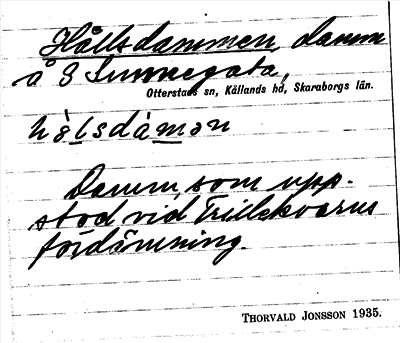 Hållsdammen, damm
å S Sunnegata,
Otterstads sn, Kållands hd, Skaraborgs län.
hå̀lsdámǝn
Damm, som upp-
stod vid Trillekvarns
fördämning.
THORVALD JONSSON 1935.